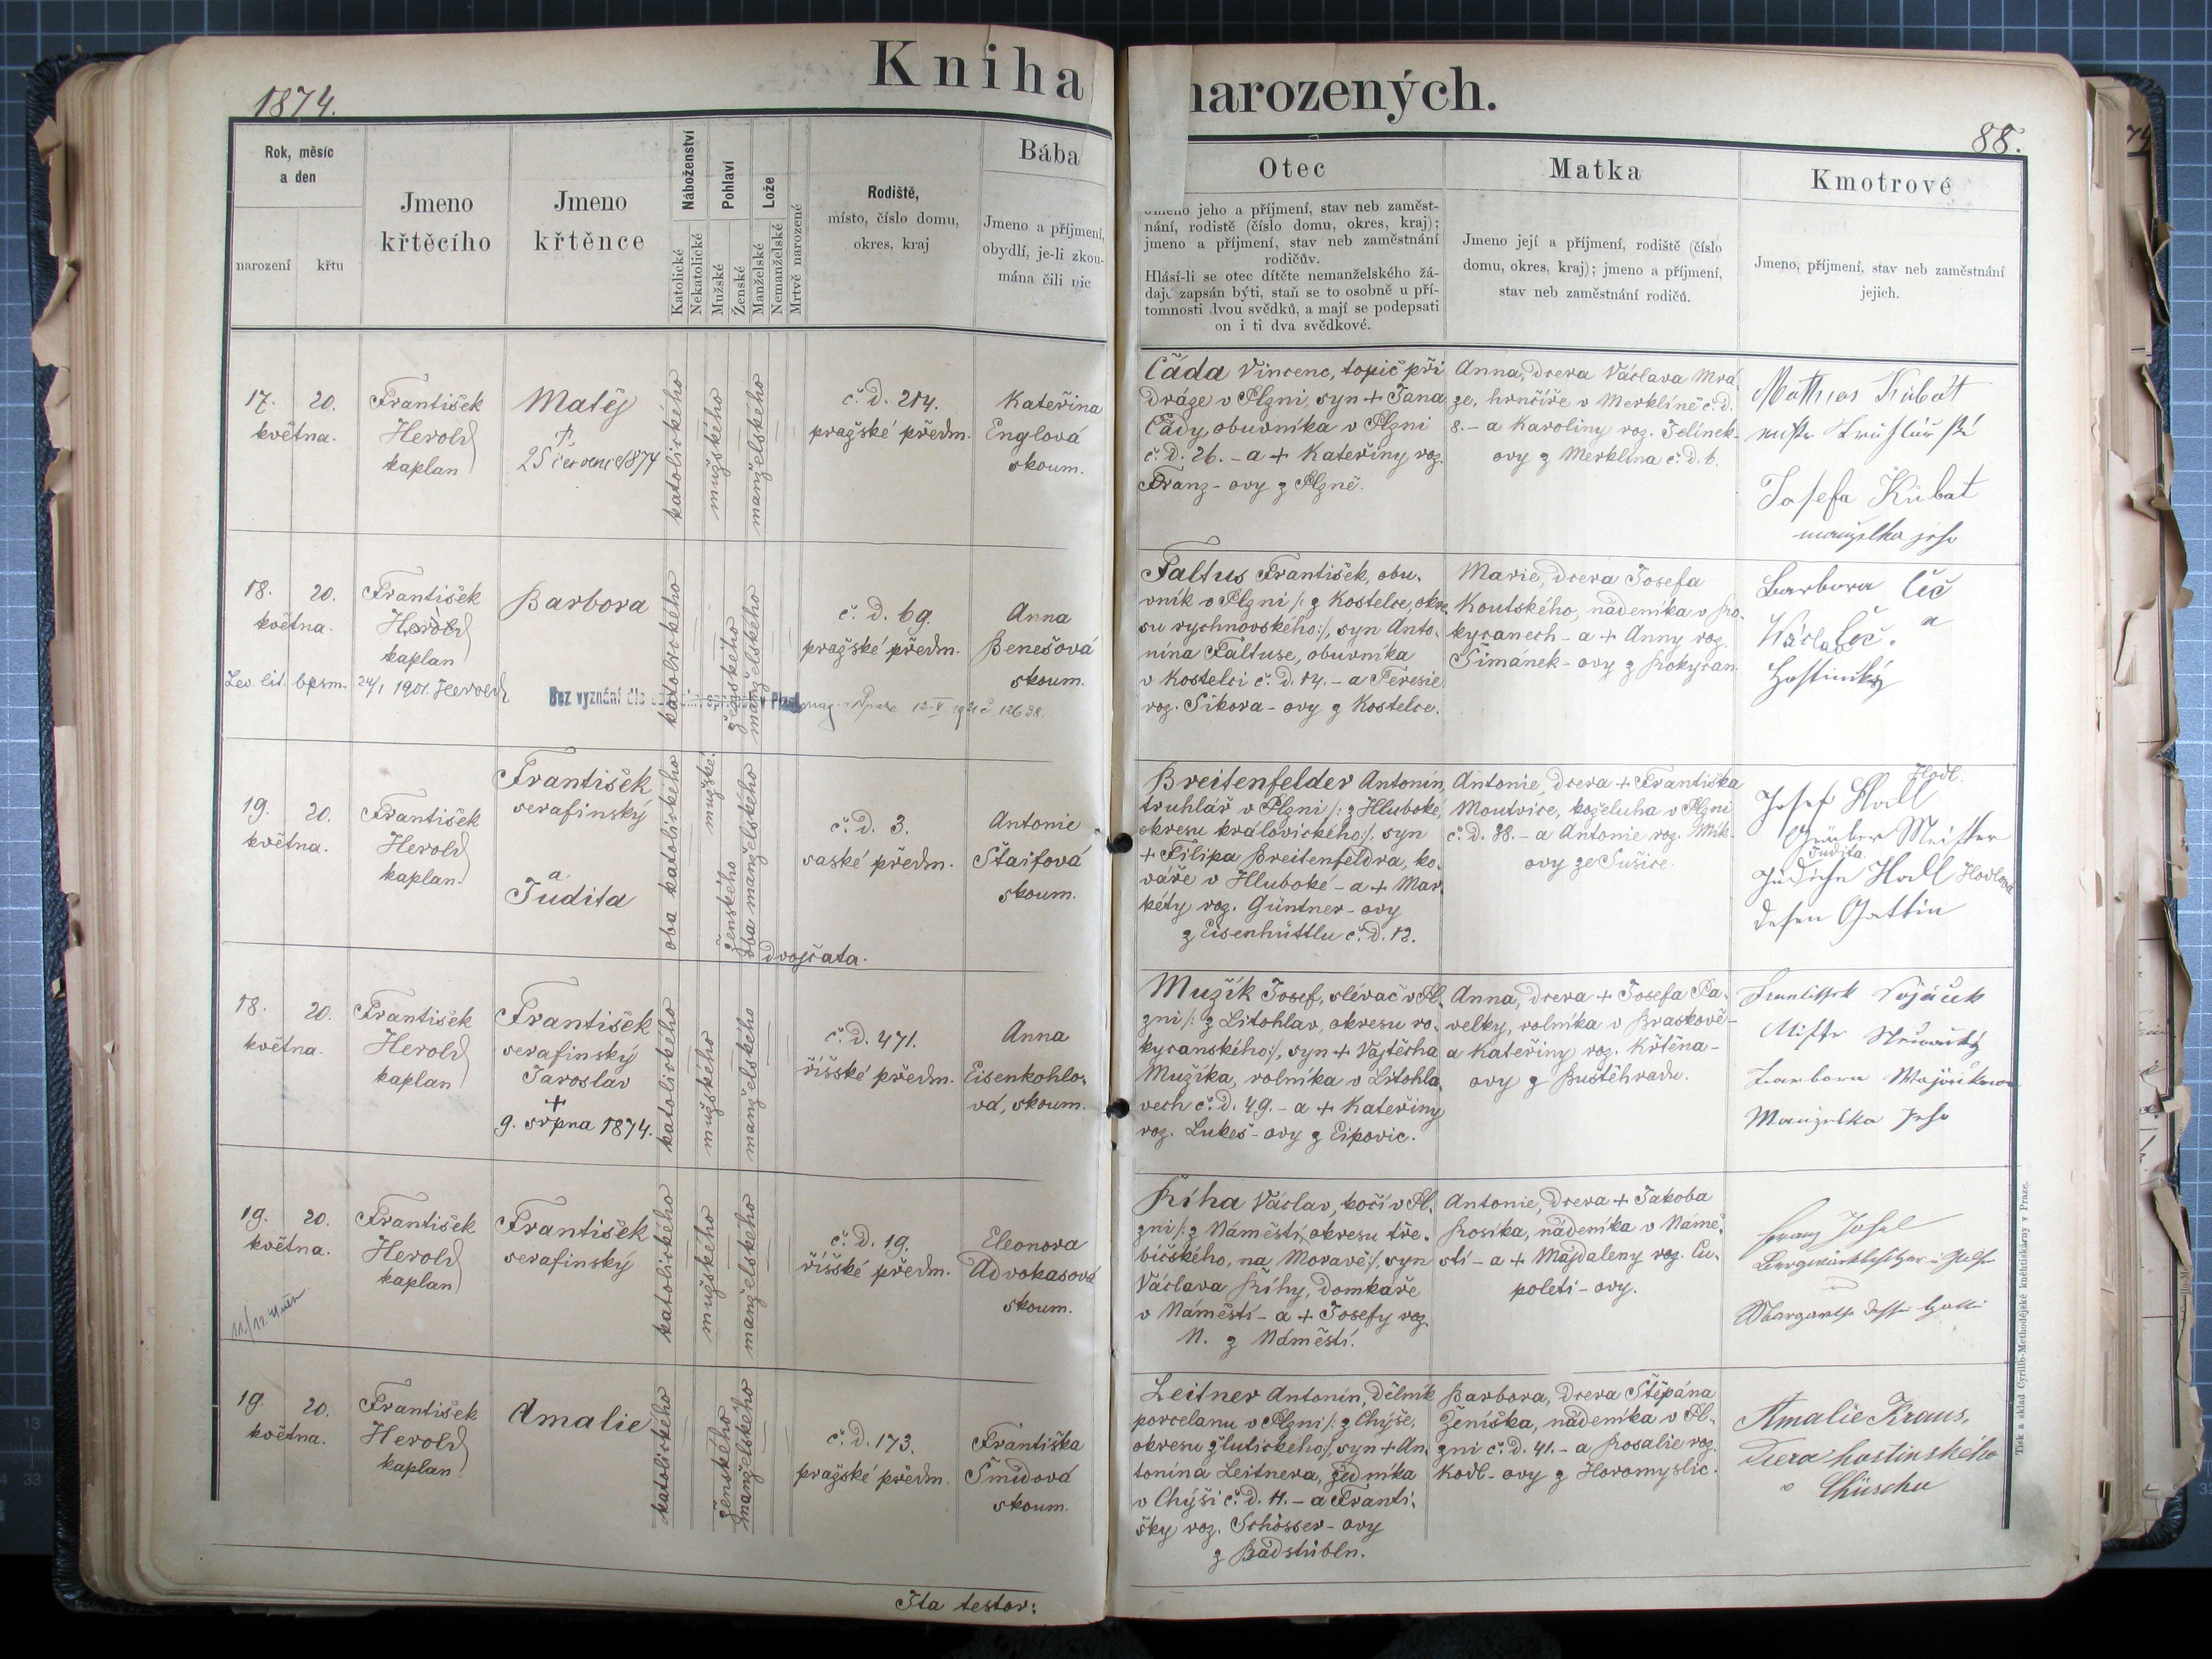 Kniha narozených.
1874.
88.
Rok, měsíc
a den
narození
křtu
Jmeno
křtěcího
Jmeno
křtěnce
Náboženství
Katolické
Nekatolické
Pohlaví
Mužské
Ženské
Lože
Manželské
Nemanželské
Mrtvě narozené
Rodiště,
místo, číslo domu,
okres, kraj
Bába
Jmeno a příjmení,
obydlí, je-li zkou-
mána čili nic
Otec
Jmeno jeho a příjmení, stav neb zaměst-
nání, rodistě (číslo domu, okres, kraj);
jmeno a příjmení, stav neb zaměstnání
rodičův.
Hlásí-li se otec dítěte nemanželského žá-
daje zapsán býti, staň se to osobně u pří-
tomnosti dvou svědků, a mají se podepsati
on i ti dva svědkové.
Matka
Jmeno její a příjmení, rodiště (číslo
domu, okres, kraj); jmeno a příjmení,
stav neb zaměstnání rodičů.
Kmotrové
Jmeno, příjmení, stav neb zaměstnání
jejich.
17. 20.
května.
František
Herold
kaplan
Matěj
†
25 července 1874
katolického
mužského
manželského
č. d. 214.
pražské předm.
Kateřina
Englová
skoum.
Čáda Vincenc, topič při
dráze v Plzni, syn + Jana
Čády, obuvníka v Plzni
č. d. 26. - a + Kateřiny roz.
Franz-ovy z Plzně.
Anna, dcera Václava Mrá-
ze, hrnčíře v Merklíně č. d.
8. - a Karoliny roz. Jelínek-
ovy z Merklína č. d. 6.
Mathias Kubát
Josefa Kubat
manželka jeho
18. 20.
května.
František
Herold
kaplan
Barbora
katolického
ženského
manželského
č. d. 69.
pražské předm.
Anna
Benešová
skoum.
Lev. lit. bpsm. 24/1 1901. Herold
Bez vyznání dle
Faltus František, obu-
vník v Plzni /: z Kostelce, okre-
su rychnovského:/, syn Anto-
nína Faltuse, obuvníka
v Kostelci č. d. 14. - a Teresie
roz. Sikora-ovy z Kostelce.
Marie, dcera Josefa
Koutského, nádeníka v Ro-
kycanech - a + Anny roz.
Šimánek-ovy z Rokycan.
Barbora Čič
a
Hostinský
19. 20.
května.
František
Herold
kaplan
František
serafinský
a
Judita
oba katolického
mužské.
ženského
oba manželského
dvojčata.
č. d. 3.
saské předm.
Antonie
Štaifová
skoum.
Breitenfelder Antonín,
truhlář v Plzni /: z Hluboké,
okresu královického:/, syn
+ Filipa Breitenfeldra, ko-
váře v Hluboké - a + Mar-
kéty roz. Güntner-ovy
z Eisenhüttlu č. d. 12.
Antonie, dcera + Františka
Moutvice, koželuha v Plzni
č. d. 88. - a Antonie roz. Mik-
ovy ze Sušice.
Hodl.
Josef Hodl
Meister
Judita
Hodl Hodlová
dessen Gattin
18. 20.
května.
František
Herold
kaplan
František
serafinský
Jaroslav
+
9. srpna 1874.
katolického
mužského
manželského
č. d. 471.
říšské předm.
Anna
Eisenkohlo-
vá, skoum.
Mužík Josef, slévač v Pl-
zni /: z Litohlav, okresu ro-
kycanského:/, syn + Vojtěcha
Mužíka, rolníka v Litohla-
vech č. d. 49. - a + Kateřiny
roz. Lukeš-ovy z Eipovic.
Anna, dcera + Josefa Pa-
velky, rolníka v Braskově -
a Kateřiny roz. Křtěna-
ovy z Buštěhradu.
Vojáček
Barbora
Manželka jeho
19. 20.
května.
František
Herold
kaplan
František
serafinský
katolického
mužského
manželského
č. d. 19.
říšské předm.
Eleonora
Advokasová
skoum.
Říha Václav, kočí v Pl-
zni /: z Náměstí, okresu tře-
bíčského, na Moravě:/, syn
Václava Říhy, domkáře
v Náměstí - a + Josefy roz.
N. z Náměstí.
Antonie, dcera + Jakoba
Rosíka, nádeníka v Námě-
stí - a + Majdaleny roz. Cu-
poleti-ovy.
Franz
19. 20.
května.
František
Herold
kaplan
Amalie
katolického
ženského
manželského
č. d. 173.
pražské předm.
Františka
Šmídová
skoum.
Leitner Antonín, dělník
porcelanu v Plzni /: z Chýše,
okresu žlutického:/, syn + An-
tonína Leitnera, zedníka
v Chýši č. d. 11. - a Franti-
šky roz. Schösser-ovy
z Badstübln.
Barbora, dcera Štěpána
Ženíška, nádeníka v Pl-
zni č. d. 41. - a Rosalie roz.
Kodl-ovy z Horomyslic.
Amalie Kraus,
Dcera hostinského
v Chüschu
Ita testor:
Tisk a sklad Cyrillo-Methodějské knihtiskárny v Praze.